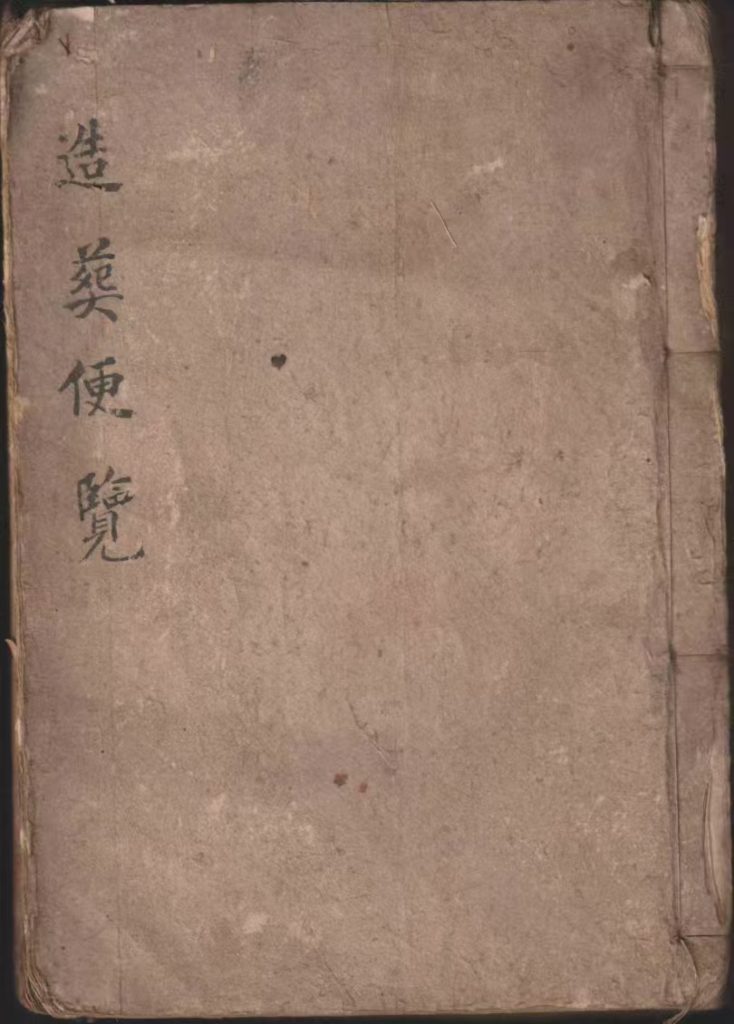 造葬便覽